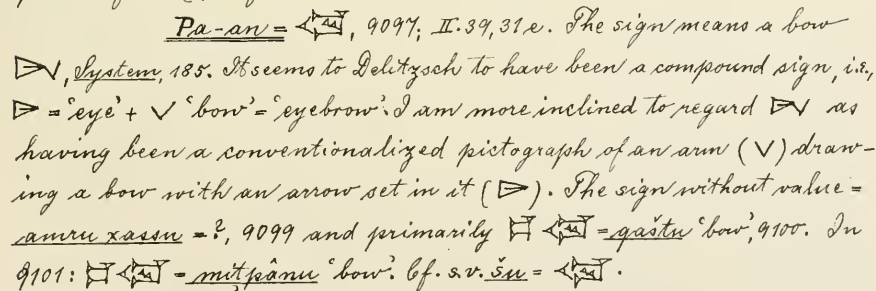 Pa-an = 𒉼, 9097; II. 39, 31 e. The sign means a bow
▷V, System, 185. It seems to Delitzsch to have been a compound sign, i.e.,
▷ = 'eye' + V 'bow' = 'eyebrow'. I am more inclined to regard ▷V as
having been a conventionalized pictograph of an arm (V) draw-
ing a bow with an arrow set in it (▷). The sign without value =
amru xassu = ?, 9099 and primarily 𒄑 𒉼 = qaštu 'bow', 9100. In
9101: 𒄑 𒉼 = mitpânu 'bow'. Cf. s.v. šu = 𒉼.